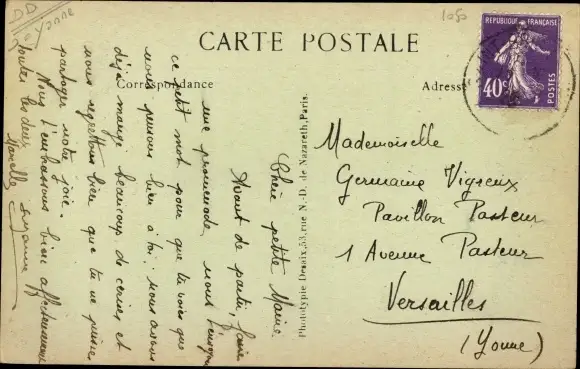 DD
Oyonne
1050
CARTE POSTALE
Correspondance
Adresse
REPUBLIQUE FRANÇAISE
40c
POSTES
Mademoiselle
Germaine Vigreux
Pavillon Pasteur
1 Avenue Pasteur
Versailles
(Yonne)
Phototypie Desaix, 33, rue N.-D. de Nazareth, Paris.
Chère petite Maine.
Avant de partir, faire
une promenade nous t'envoyons
ce petit mot pour que tu vois que
nous pensons bien à toi. nous avons
déjà mangé beaucoup de cerises, et
nous regrettons bien que tu ne puisses
partager notre joie.
Nous t'embrassons bien affectueusement
toutes les deux
Marcelle Suzanne